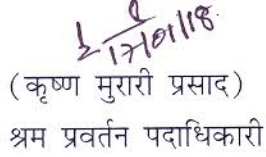 17/01/18.
(कृष्ण मुरारी प्रसाद)
श्रम प्रवर्तन पदाधिकारी